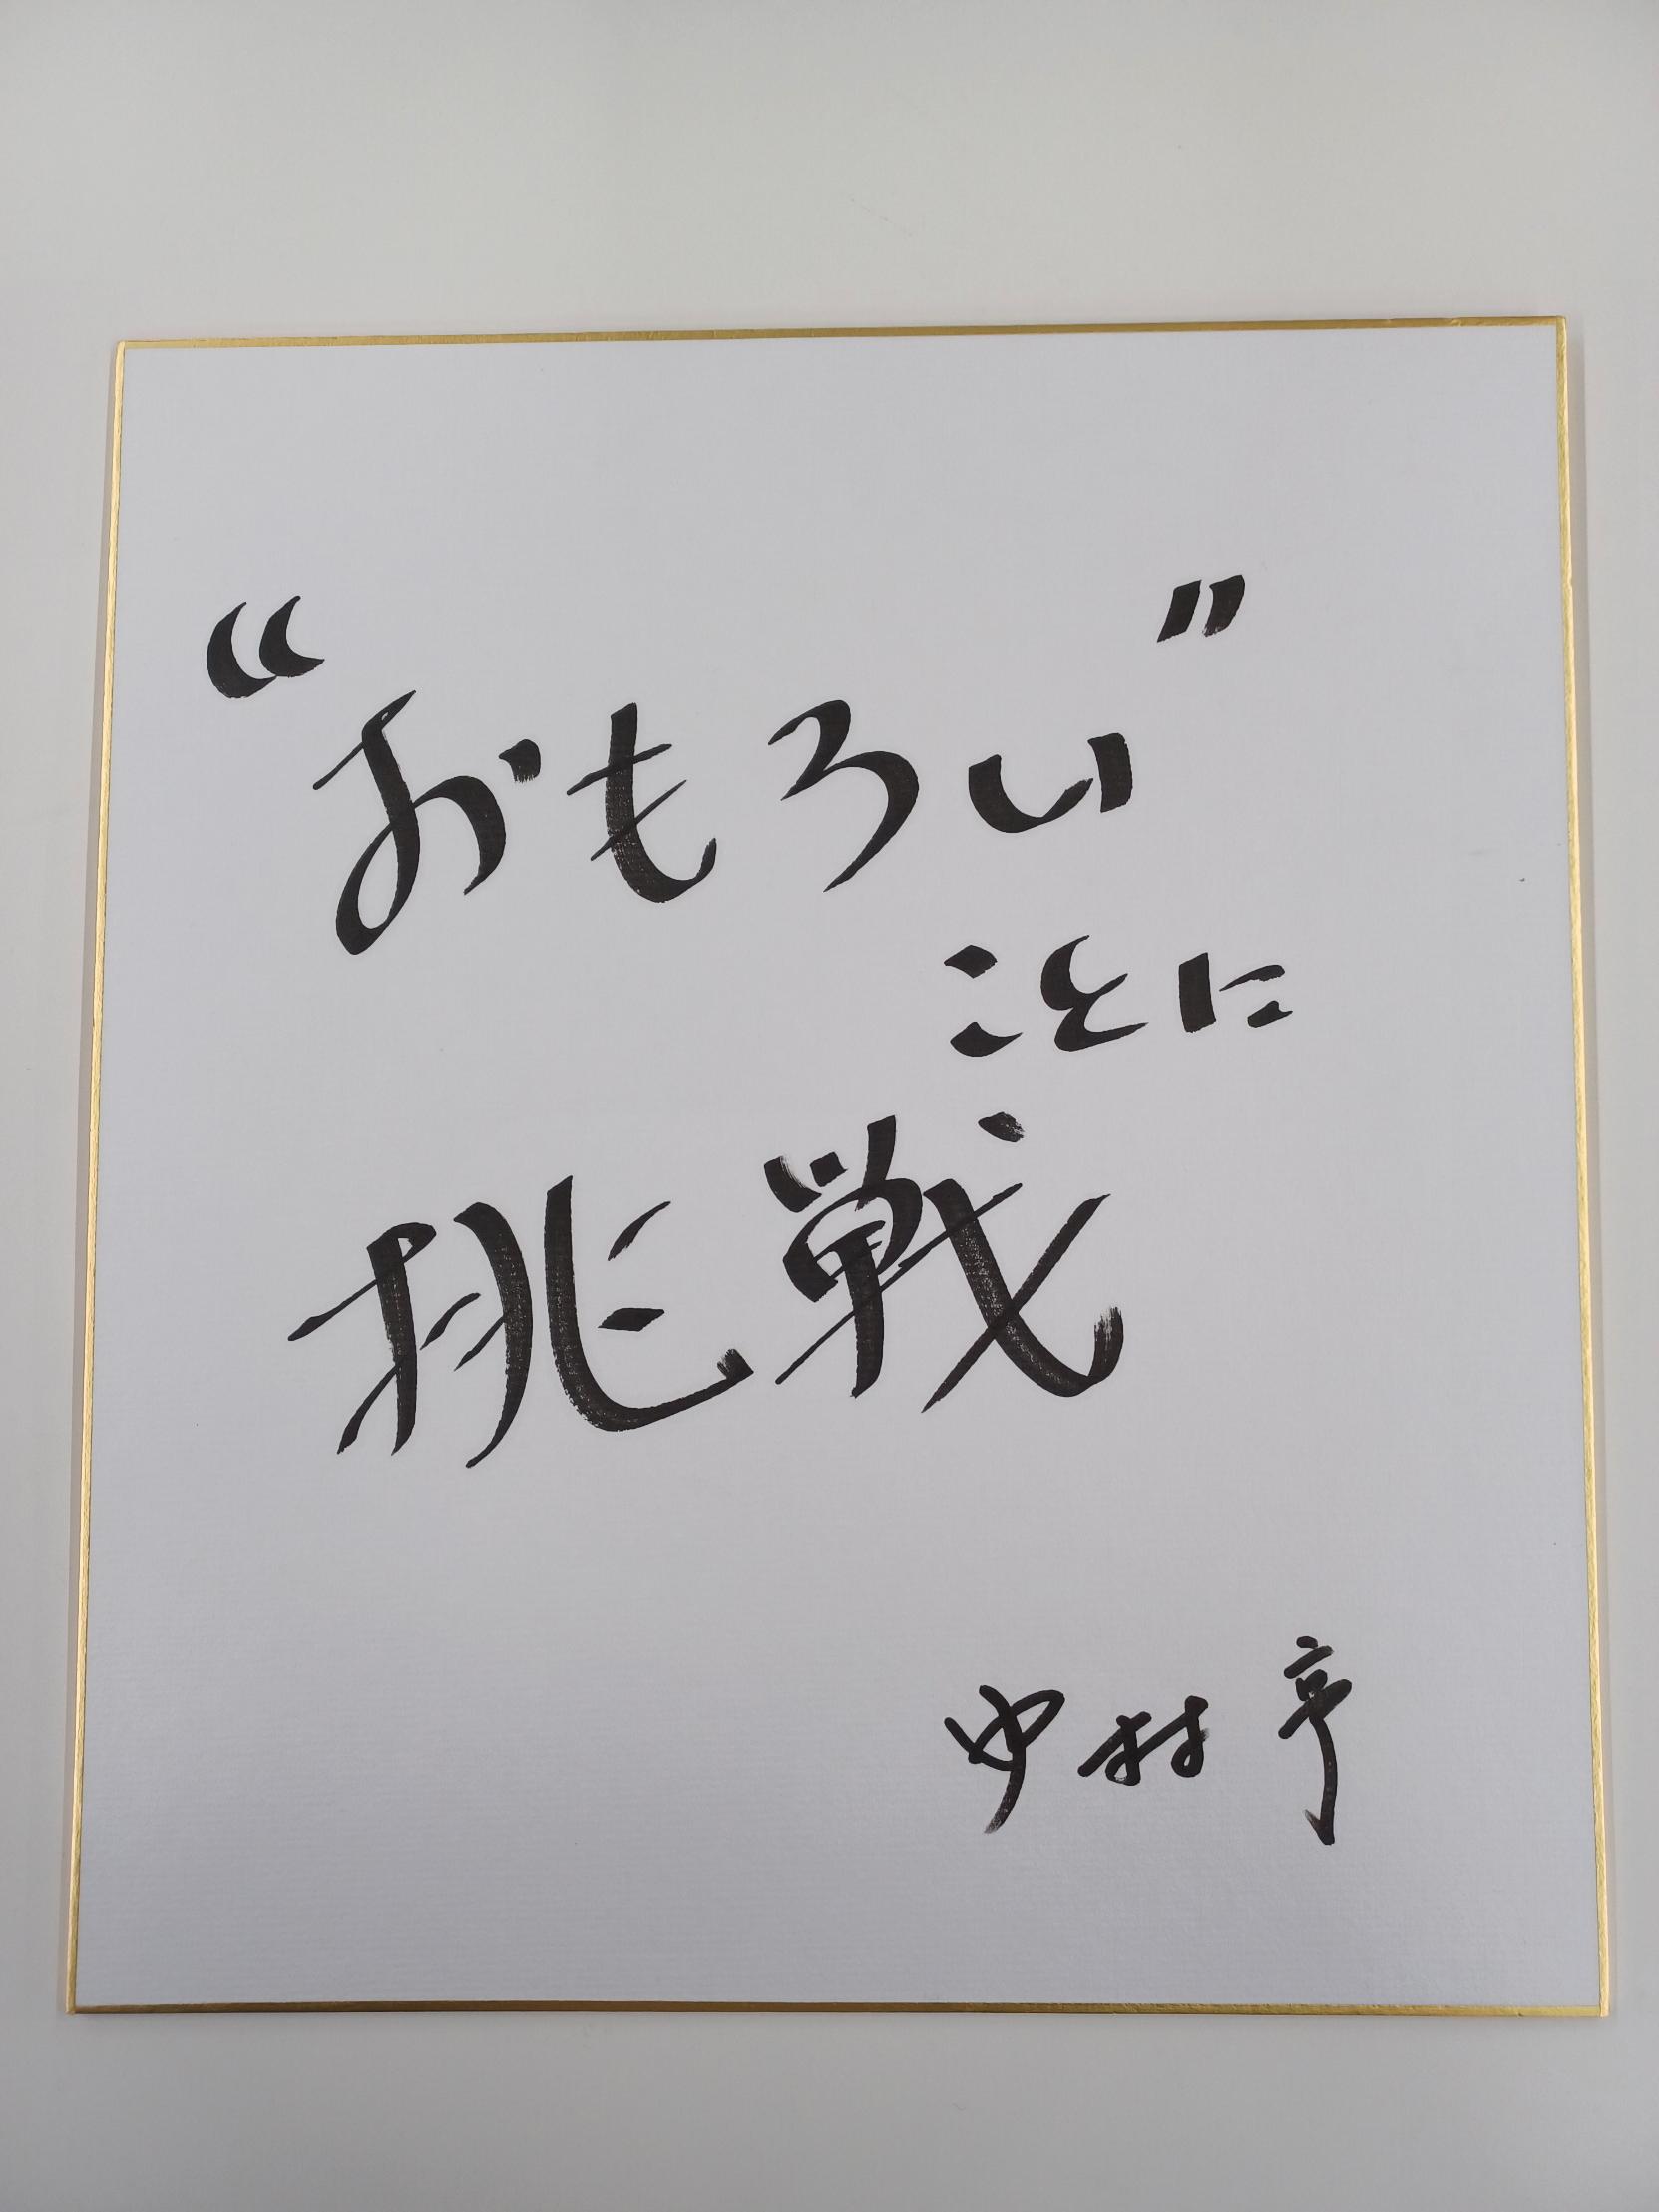 “おもろい”
ことに
挑戦
中村亨